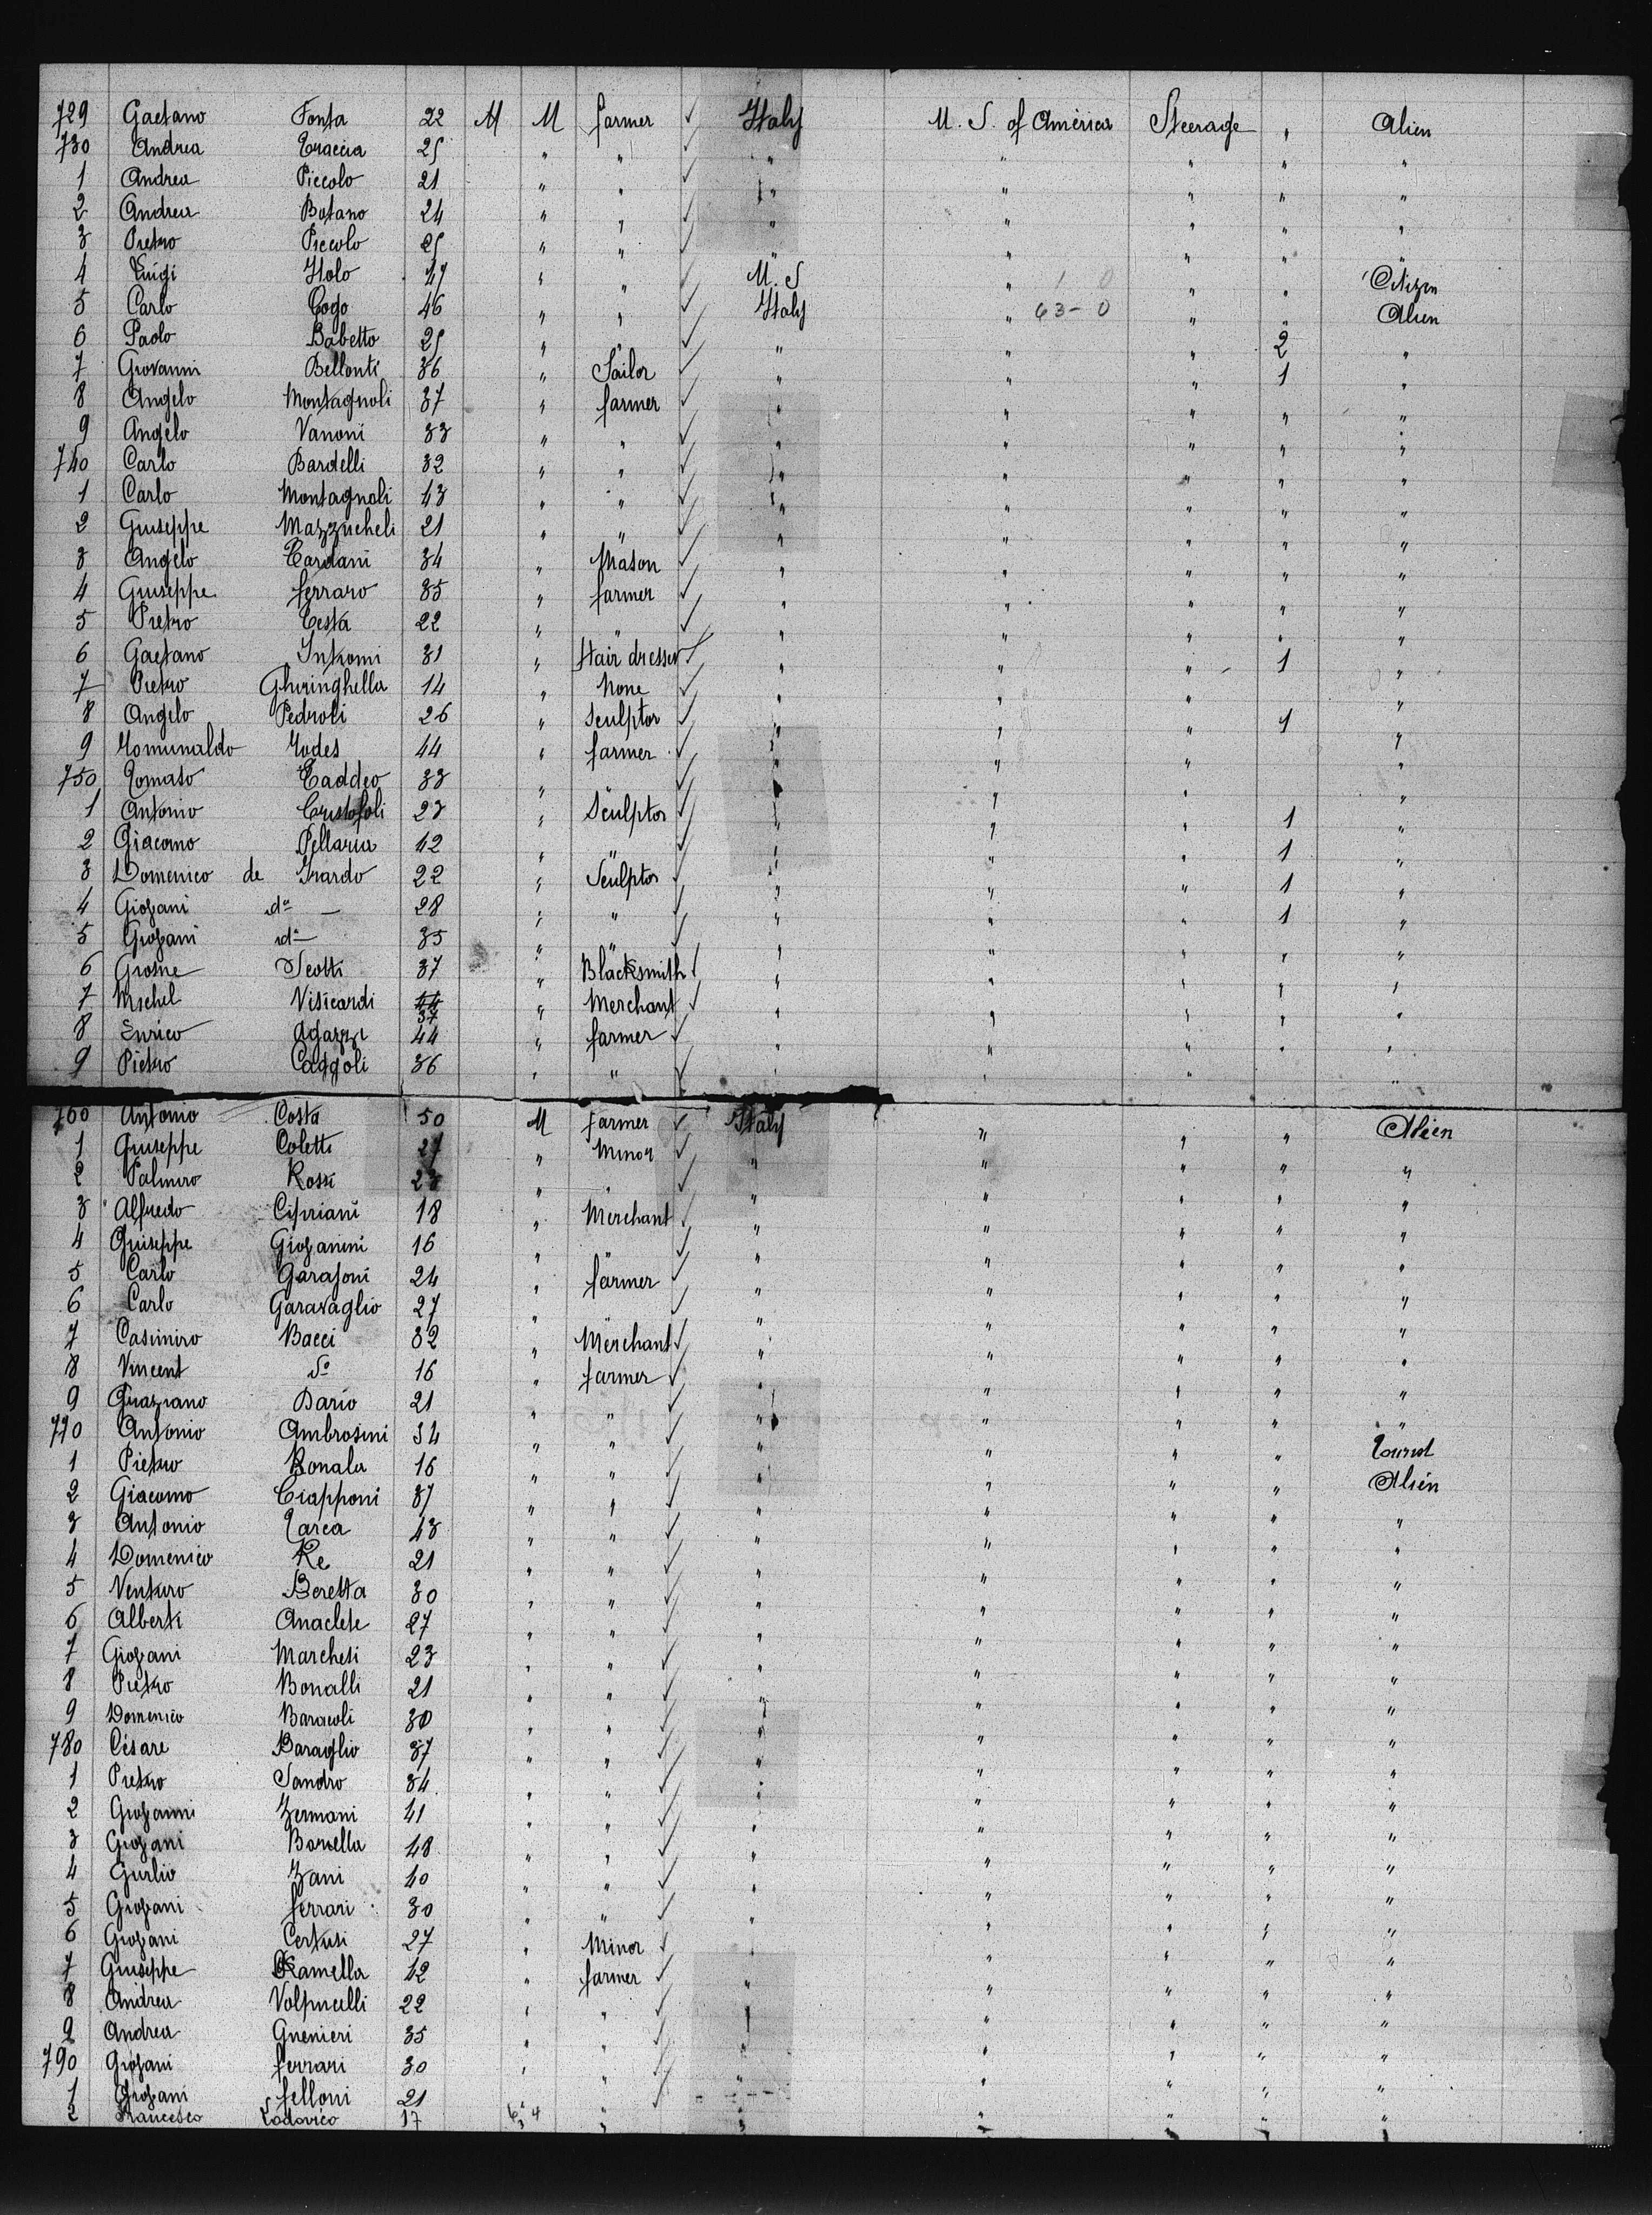 729 Gaetano Fonta 22 M M farmer ✓ Italy U. S. of América Steerage " Alien
730 Andrea 25 " " ✓ " " " " "
1 Andrea Piccolo 21 " " ✓ " " " " "
2 Andrea Botano 24 " " ✓ " " " " "
3 Pietro Piccolo 25 " " ✓ " " " " "
4 Luigi Italo 47 " " ✓ U. S " 1 0 " " Citizen
5 Carlo Gogo 46 " " ✓ Italy " 63-0 " " Alien
6 Paolo Babetto 25 " " ✓ " " " 2 "
7 Giovanni Bellonti 36 " Sailor ✓ " " " 1 "
8 Angelo Montagnoli 37 " farmer ✓ " " " " "
9 Angelo Vanoni 33 " " ✓ " " " " "
740 Carlo Bardelli 32 " " ✓ " " " " "
1 Carlo Montagnoli 43 " " ✓ " " " " "
2 Giuseppe Mazzucheli 21 " " ✓ " " " " "
3 Angelo Cardani 34 " Mason ✓ " " " " "
4 Giuseppe ferraro 35 " farmer ✓ " " " " "
5 Pietro Testa 22 " " ✓ " " " " "
6 Gaetano Introini 31 " Hair dresser ✓ " " " 1 "
7 Pietro Ghiringhella 14 " None ✓ " " " "
8 Angelo Pedroli 26 " Sculptor ✓ " " " 1 "
9 44 " farmer ✓ " " " "
750 Tomaso Taddeo 33 " " ✓ " " " "
1 Antonio Cristofoli 23 " Sculptor ✓ " " " 1 "
2 Giacomo Pellaria 42 " " ✓ " " " 1 "
3 Domenico de 22 " Sculptor ✓ " " " 1 "
4 Giovani do — 28 " " ✓ " " " 1 "
5 Giovani do — 35 " " ✓ " " " " "
6 Scotti 37 " Blacksmith ✓ " " " " "
7 Michel Visicardi 44 37 " Merchant ✓ " " " " "
8 Enrico Agazzi 44 " farmer ✓ " " " " "
9 Pietro Caggoli 36 " " ✓ " " " "
760 Antonio Costa 50 M Farmer ✓ Italy " " " Alien
1 Giuseppe Coletti 27 " Minor ✓ " " " " "
2 Palmiro Rossi 23 " " ✓ " " " " "
3 Alfredo Cipriani 18 " Merchant ✓ " " " " "
4 Guiseppe Giovanini 16 " " ✓ " " " " "
5 Carlo Garavoni 24 " farmer ✓ " " " " "
6 Carlo Garavaglio 27 " " ✓ " " " " "
7 Casimiro Bacci 32 " Merchant ✓ " " " " "
8 Vincent Do 16 " farmer ✓ " " " " "
9 Graziano Dario 21 " " ✓ " " " " "
770 Antonio Ambrosini 34 " " ✓ " " " " Tourist
1 Pietro Bonala 16 " " ✓ " " " " Alien
2 Giacomo Ciapponi 37 " " ✓ " " " " "
3 Antonio Zarca 43 " " ✓ " " " " "
4 Domenico Re 21 " " ✓ " " " " "
5 Venturo Beretta 30 " " ✓ " " " " "
6 Alberti Anaclete 27 " " ✓ " " " " "
7 Giovani Marchesi 23 " " ✓ " " " " "
8 Pietro Bonalli 21 " " ✓ " " " " "
9 Domenico Baracoli 30 " " ✓ " " " " "
780 Césare Baraglio 37 " " ✓ " " " " "
1 Pietro Sandro 34 " " ✓ " " " " "
2 Giovanni Zermani 41 " " ✓ " " " " "
3 Giovani Borsella 48 " " ✓ " " " " "
4 Giulio Zani 40 " " ✓ " " " " "
5 Giovani ferrari 30 " " ✓ " " " " "
6 Giovani Certusi 27 " Minor ✓ " " " " "
7 Giuseppe Ramella 42 " farmer ✓ " " " " "
8 Andrea Volpucelli 22 " " ✓ " " " " "
9 Andrea Gnenieri 35 " " ✓ " " " " "
790 Giovani ferrari 30 " " ✓ " " " " "
1 Giovani felloni 21 " " ✓ " " " " "
2 Francesco Lodovico 17 " " " " " " "